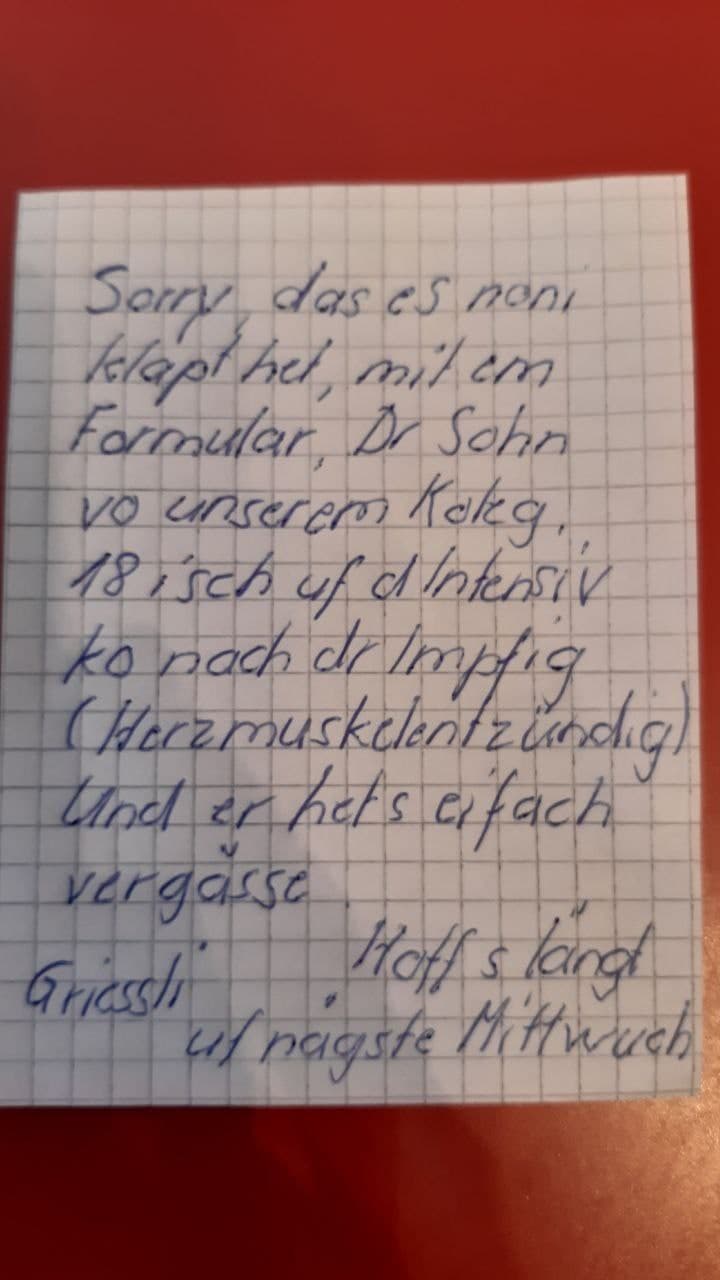 Sorry, das es noni
klapt het, mit em
Formular, Dr Sohn
vo unserem Koleg,
18 isch uf d Intensiv
ko nach dr Impfig
(Herzmuskelentzündig)
Und er het s eifach
vergässe.
Hoff s längt
Griessli
uf nägste Mittwuch